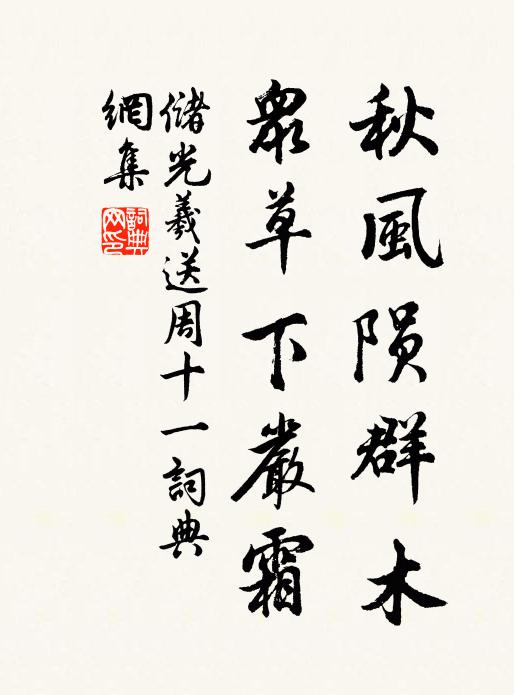 秋風陨群木
眾草下嚴霜
儲光羲送周十一詞典
網集
詞典網印